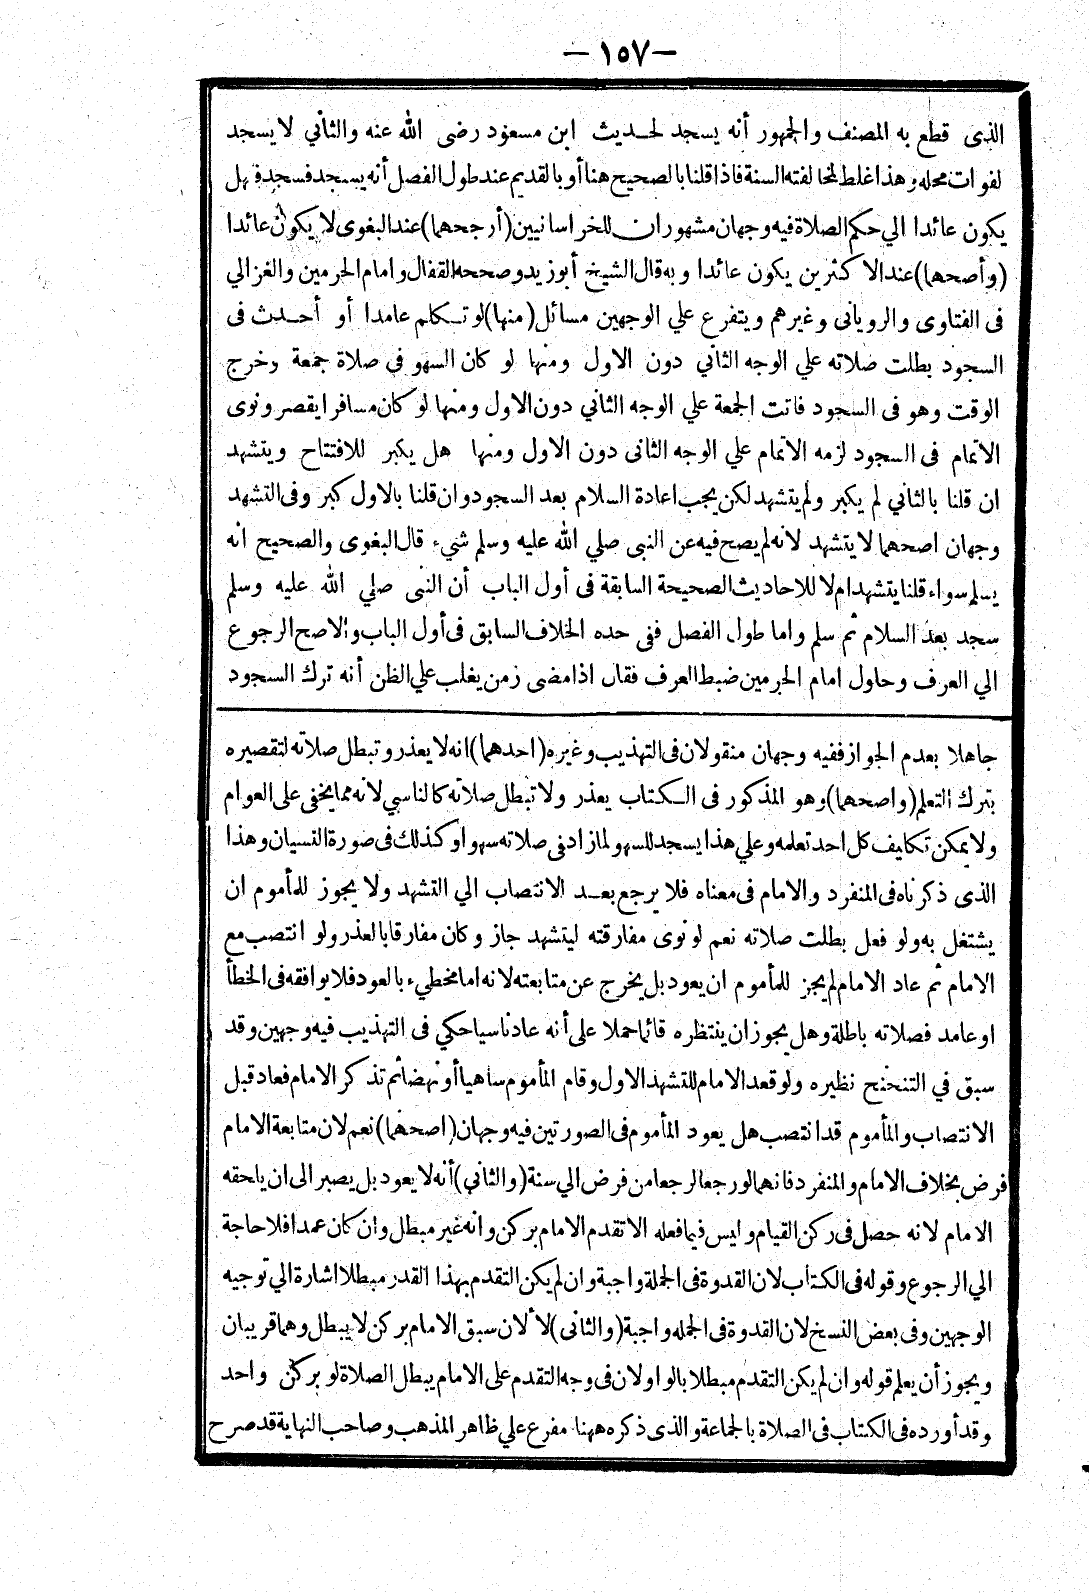 — ١٥٧ —
الذى قطع به المصنف والجمهور أنه يسجد لحديث ابن مسعود رضى الله عنه والثاني لا يسجد
لفوات محله وهذا غلط لمخالفته السنة فاذا قلنا بالصحيح هنا أو بالقديم عند طول الفصل أنه يسجد فسجد فهل
يكون عائدا الي حكم الصلاة فيه وجهان مشهوران للخراسانيين (أرجحهما) عند البغوى لا يكون عائدا
(وأصحهما) عند الاكثرين يكون عائدا وبه قال الشيخ أبو زيد وصححه القفال وامام الحرمين والغزالي
فى الفتاوى والرويانى وغيرهم ويتفرع علي الوجهين مسائل (منها) لو تكلم عامدا أو أحدث فى
السجود بطلت صلاته علي الوجه الثاني دون الاول ومنها لو كان السهو في صلاة جمعة وخرج
الوقت وهو فى السجود فاتت الجمعة علي الوجه الثاني دون الاول ومنها لو كان مسافرا يقصر ونوى
الاتمام فى السجود لزمه الاتمام علي الوجه الثانى دون الاول ومنها هل يكبر للافتتاح ويتشهد
ان قلنا بالثاني لم يكبر ولم يتشهد لكن يجب اعادة السلام بعد السجود وان قلنا بالاول كبر وفى التشهد
وجهان اصحهما لا يتشهد لانه لم يصح فيه عن النبى صلي الله عليه وسلم شيء قال البغوى والصحيح انه
يسلم سواء قلنا يتشهد ام لا للاحاديث الصحيحة السابقة فى أول الباب أن النبى صلي الله عليه وسلم
سجد بعد السلام ثم سلم واما طول الفصل ففى حده الخلاف السابق فى أول الباب والاصح الرجوع
الي العرف وحاول امام الحرمين ضبط العرف فقال اذا مضى زمن يغلب علي الظن أنه ترك السجود
جاهلا بعدم الجواز ففيه وجهان منقولان فى التهذيب وغيره (احدهما) انه لا يعذر وتبطل صلاته لتقصيره
بترك التعلم (واصحهما) وهو المذكور فى الكتاب يعذر ولا تبطل صلاته كالناسي لانه مما يخفى على العوام
ولا يمكن تكليف كل احد تعلمه وعلي هذا يسجد للسهو لما زاد فى صلاته سهوا وكذلك فى صورة النسيان وهذا
الذى ذكرناه فى المنفرد والامام فى معناه فلا يرجع بعد الانتصاب الي التشهد ولا يجوز للمأموم ان
يشتغل به ولو فعل بطلت صلاته نعم لو نوى مفارقته ليتشهد جاز وكان مفارقا بالعذر ولو انتصب مع
الامام ثم عاد الامام لم يجز للمأموم ان يعود بل يخرج عن متابعته لانه اما مخطيء بالعود فلا يوافقه فى الخطأ
او عامد فصلاته باطلة وهل يجوز ان ينتظره قائما حملا على أنه عاد ناسيا حكي فى التهذيب فيه وجهين وقد
سبق في التنحنح نظيره ولو قعد الامام للتشهد الاول وقام المأموم ساهيا أو نهضا ثم تذكر الامام فعاد قبل
الانتصاب والمأموم قد انتصب هل يعود المأموم فى الصورتين فيه وجهان (اصحهما) نعم لان متابعة الامام
فرض بخلاف الامام والمنفرد فانهما لو رجعا لرجعا من فرض الي سنة (والثاني) أنه لا يعود بل يصبر الى ان يلحقه
الامام لانه حصل فى ركن القيام وليس فيما فعله الا تقدم الامام بركن وانه غير مبطل وان كان عمدا فلا حاجة
الي الرجوع وقوله فى الكتاب لان القدوة فى الجملة واجبة وان لم يكن التقدم بهذا القدر مبطلا اشارة الي توجيه
الوجهين وفى بعض النسخ لان القدوة فى الجملة واجبة (والثانى) لا لأن سبق الامام بركن لا يبطل وهما قريبان
ويجوز أن يعلم قوله وان لم يكن التقدم مبطلا بالواو لان فى وجه التقدم على الامام يبطل الصلاة لو بركن واحد
وقد أورده فى الكتاب فى الصلاة بالجماعة والذى ذكره ههنا مفرع علي ظاهر المذهب وصاحب النهاية قد صرح